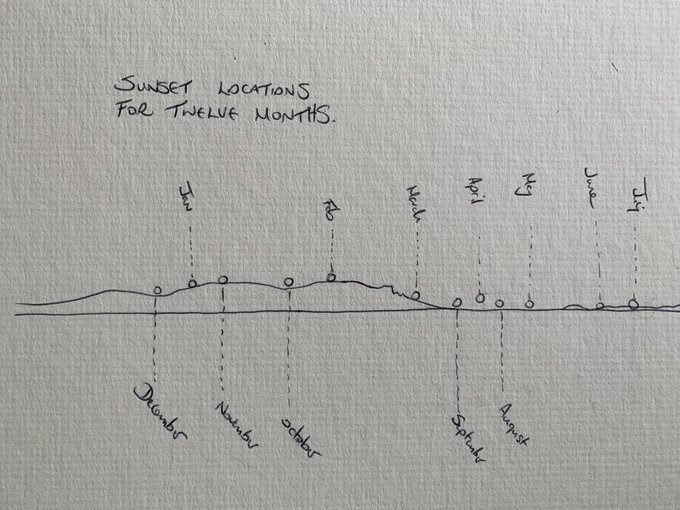 SUNSET LOCATIONS
FOR TWELVE MONTHS.
Jan
Feb
March
April
May
June
July
December
November
October
September
August